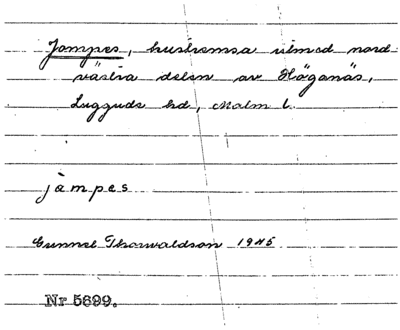 Jampes, kustremsa utmed nord-
västra delen av Höganäs,
Luggude hd, Malm l.
jàmpes
Gunnel Thorwaldson 1945
Nr 5899.